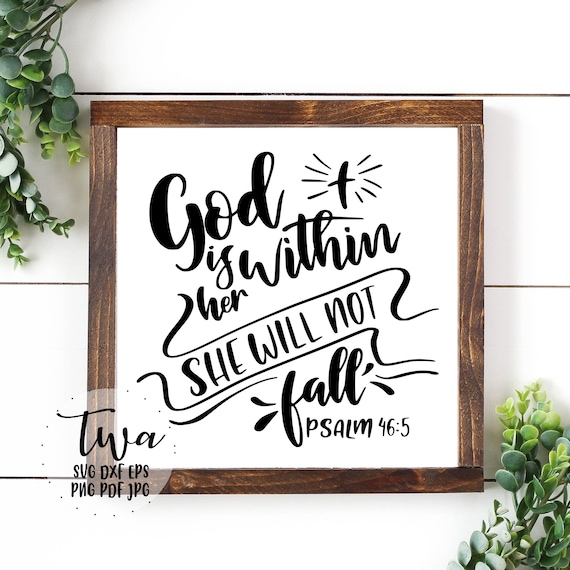 God
is within
her
SHE WILL NOT
fall
PSALM 46:5
twa
SVG DXF EPS
PNG PDF JPG